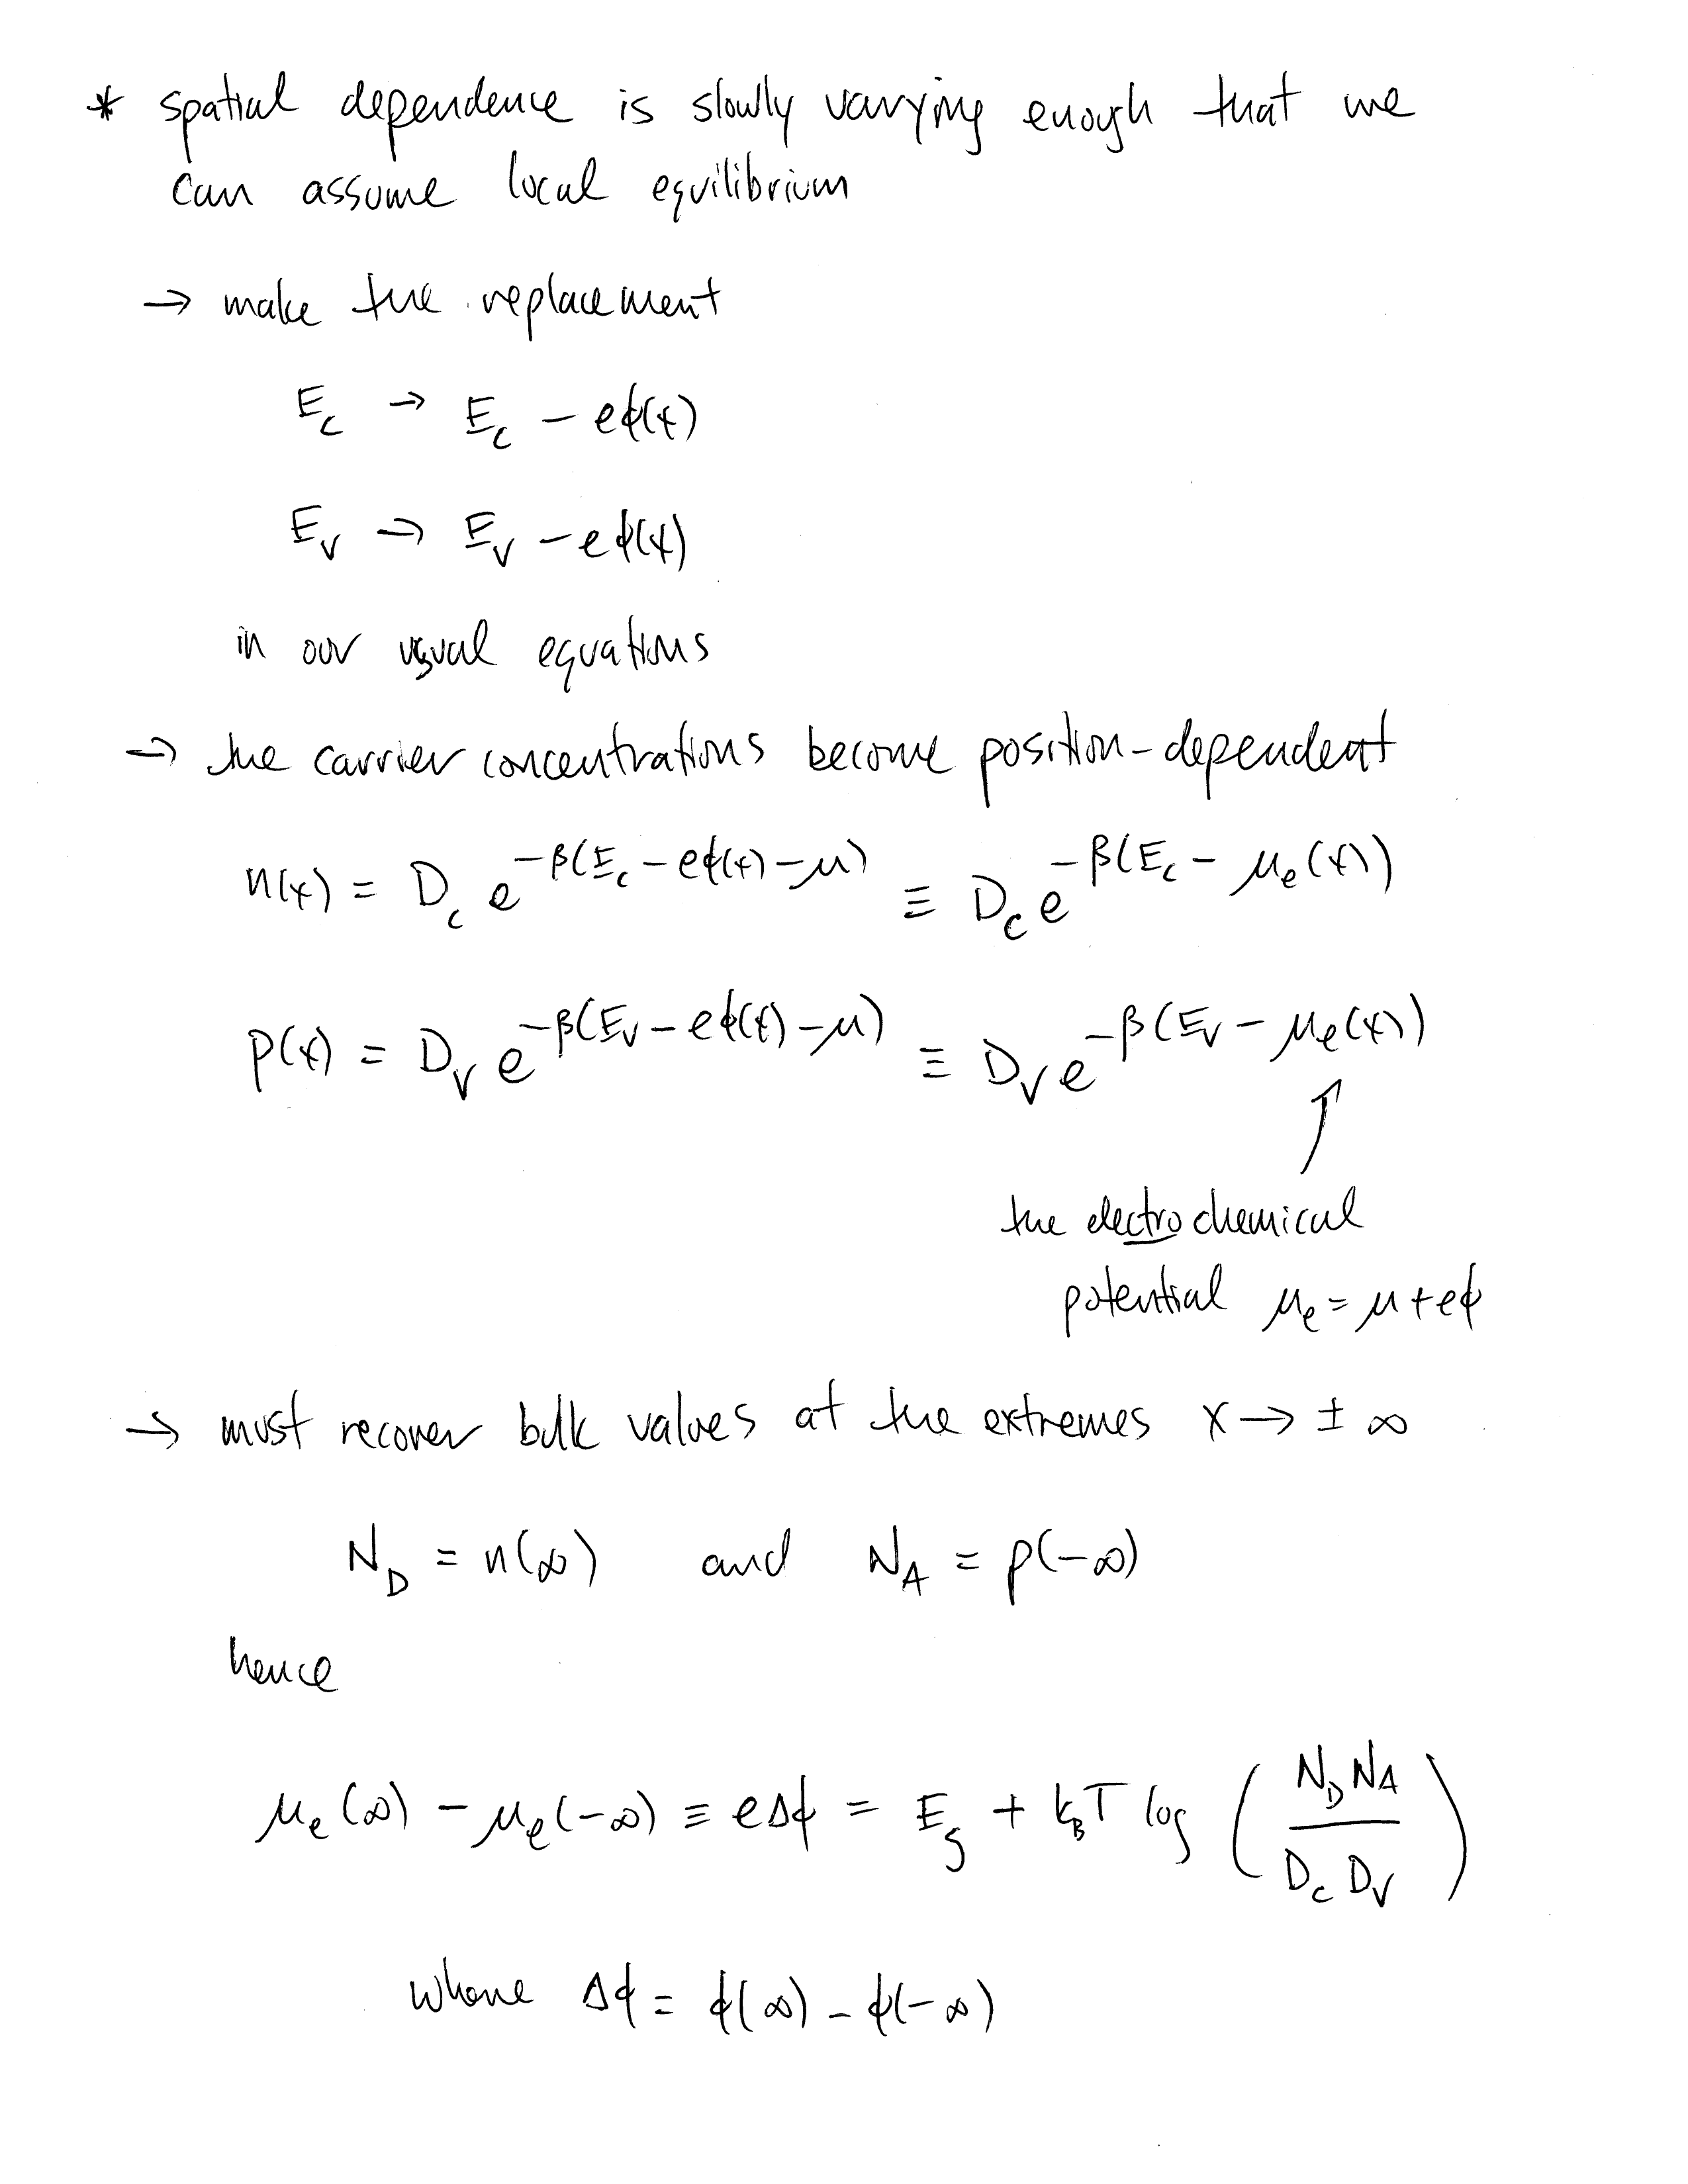 * spatial dependence is slowly varying enough that we
can assume local equilibrium
→ make the replacement
E_c → E_c − eϕ(x)
E_v → E_v − eϕ(x)
in our usual equations
→ the carrier concentrations become position-dependent
n(x) = D_c e^{−β(E_c − eϕ(x) − μ)} ≡ D_c e^{−β(E_c − μ_e(x))}
p(x) = D_v e^{−β(E_v − eϕ(x) − μ)} ≡ D_v e^{−β(E_v − μ_e(x))}
the electrochemical
potential μ_e = μ + eϕ
→ must recover bulk values at the extremes x → ± ∞
N_D = n(∞) and N_A = p(−∞)
hence
μ_e(∞) − μ_e(−∞) ≡ eΔϕ = E_g + k_B T log (N_D N_A / D_c D_v)
where Δϕ = ϕ(∞) − ϕ(−∞)